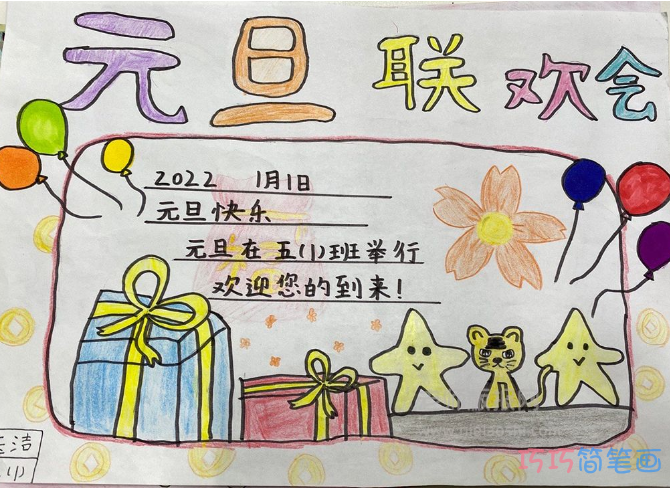 元旦联欢会
2022 1月1日
元旦快乐
元旦在五(1)班举行
欢迎您的到来!
洁
巧巧简笔画